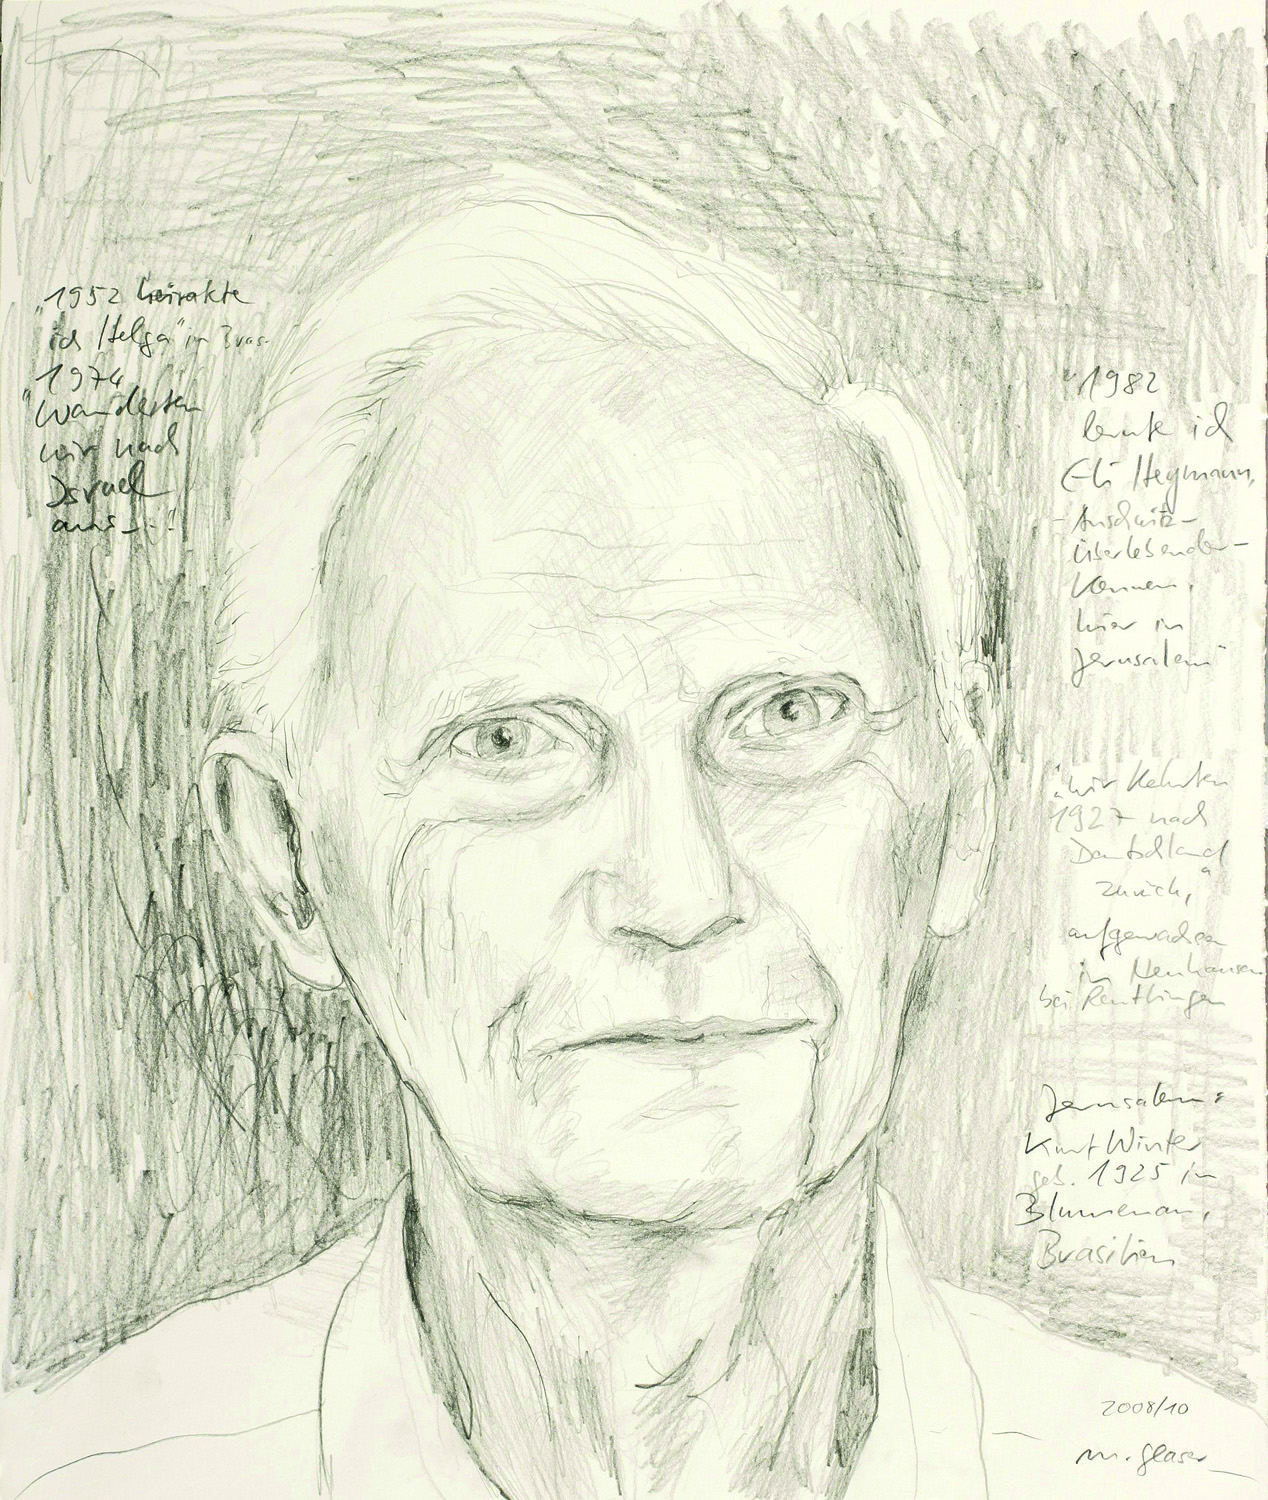 "1952 heirakte
ich Helga" in Bras-
1974
"wanderten
wir nach
Israel
aus...."
"1982
lernte ich
Eli Heymann,
- Auschwitz-
überlebender -
kennen,
hier in
Jerusalem"
"wir kehrten
1927 nach
Deutschland
zurück,"
aufgewachsen
in Neuhausen
bei Reutlingen
Jerusalem:
Kurt Winter
geb. 1925 in
Blumenau,
Brasilien
2008/10
m. glaser